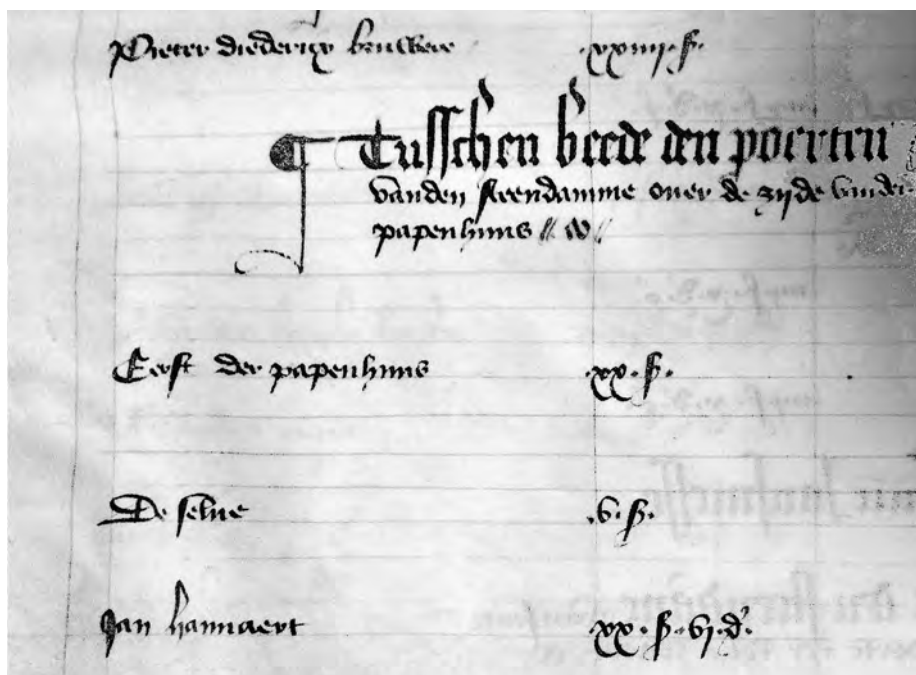 Pieter diedericx bruwere .xxiiij. ß.
Tusschen beede den poerten
vanden steendamme ouer de zijde vander
papenhuus
Eerst der papenhuus .xx. ß.
De selue .v. ß.
Jan hannaert xx. ß. vj. d.